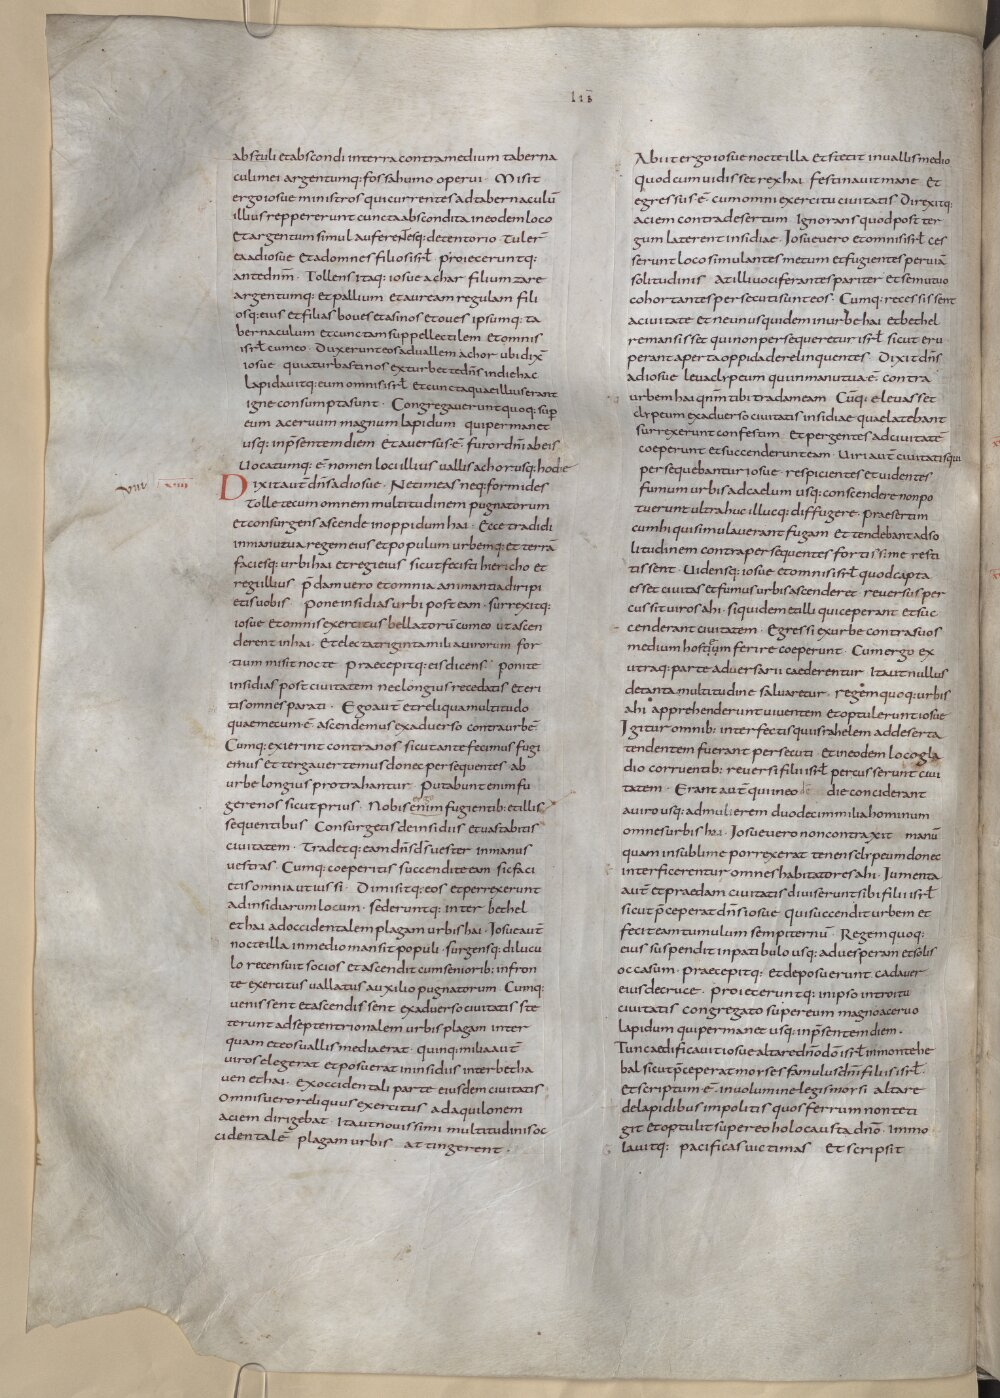 lıb̅
abstuli etabscondi interra contramedium taberna
culimei argentumq: fossahumo operui · Misit
ergoiosue ministros quicurrentes adtabernaculū
illius reppererunt cunctaabscondita ineodemloco
Etargentumsimul auferentesq: detentorio · Tuler̅
eaadiosue Etadomnes filiosisrl̅ · proieceruntq:
antednm̅ · Tollens itaq: iosue achar filiumzare
argentumq: etpallium etauream regulam fili
osq: eius etfilias boves etasinos etoves ipsumq: ta
bernaculum etcunctamsuppellectilem etomnis
isrl̅ cumeo · Duxerunteosadvallem achor ubi dix̅
iosue quiaturbastinos exturbet tedn̅s indiehac
lapidavitq: eum omnisisrl̅ Etcunctaquaeilliuserant
igne consumptasunt · Congregaveruntquoq: sup̅
eum acervum magnum lapidum quipermanet
usq: inp̅sentemdiem Etaversus ē · furordn̅i abeis
Uocatumq: ē nomen lociillius vallisachorusq: hodie
VIII VIIII
Dixitaut̅ dn̅s adiosue · Netimeas neq: formides
Tolle tecum omnem multitudinem pugnatorum
etconsurgens ascende inoppidum hai · Ecce tradidi
inmanutua regem eius etpopulum urbemq: et terrā
faciesq: urbihai etregieius sicutfecisti hiericho et
regi illius p̅dam vero etomnia animantia diripi
etisuobis pone insidias urbi posteam · surrexitq:
iosue etomnis exercitus bellatorū cumeo utascen
derent inhai · Etelectatrigintamilia virorum for
tium misit nocte praecepitq: eis dicens · ponite
insidias post civitatem neclongius recedatis eteri
tisomnesparati · Egoaut̅ etreliquamultitudo
quaemecum ē ascendemus exadverso contraurbē
Cumq: exierint contranos sicutantefecimus fugi
emus etterga vertemus donec persequentes ab
urbe longius protrahantur Putabunt enimfu
gerenos sicutprius · Nobis enim fugientib: etillis
sequentibus Consurgetis deinsidiis etvastabitis
civitatem · Tradetq: eam dn̅s ds̅ vester inmanus
vestras · Cumq: coeperitis succenditeeam sicfaci
etisomnia utiussi · Dimisitq: eos etperrexerunt
adinsidiarumlocum · sederuntq: inter bethel
ethai adoccidentalemplagam urbishai · Iosueaut̅
nocteilla inmedio mansit populi · surgensq: dilucu
lo recensuit socios etascendit cumseniorib: infron
te exercitus vallatus auxilio pugnatorum · Cumq:
venissent etascendissent exadversocivitatis ste
terunt adseptentrionalem urbisplagam inter
quam eteosvallismediaerat · quinq: miliaaut̅
viros elegerat etposuerat ininsidiis interbetha
ven ethai · exoccidentali parte eiusdem civitatis
omnisueroreliquus exercitus adaquilonem
aciem dirigebat · Itautnovissimi multitudinisoc
cidentalē plagam urbis attingerent ·
Abiit ergoiosue nocteilla Etstetit invallismedio
quodcumvidisset rexhai festinavitmane Et
egressus ē cumomni exercitu civitatis Direxitq:
aciem contradesertum Ignorans quodpostter
gum laterent insidiae · Iosuevero etomnisisrl̅ ces
serunt loco simulantes metum etfugientes perviā
solitudinis Atilli vociferantespariter Etsemutuo
cohortantes persecutisunteos · Cumq: recessissent
acivitate etneunusquidem inurbe hai etbethel
remansisset quinonpersequeretur isrl̅ sicut eru
perant aperta oppida derelinquentes · Dixitdn̅s
adiosue levaclypeum quiinmanutua ē · contra
urbem hai qnm̅ tibitradameam Cūq: elevasset
clypeum exadverso civitatis insidiae quaelatebant
surrexerunt confestim Et pergentes adcivitatē
coeperunt etsuccenderunteam · Uiriaut̅ civitatisqui
persequebantur iosue · respicientes etvidentes
fumum urbis adcaelum usq: conscendere nonpo
tuerunt ultrahuc illucq: diffugere · praesertim
cumhi quisimulaverant fugam Et tendebantadso
litudinem contrapersequentes fortissime resti
tissent · Uidensq: iosue etomnisisrl̅ quodcapta
esset civitas etfumus urbisascenderet reversus per
cussit virosahi · siquidemetilli quiceperant etsuc
cenderant civitatem · Egressi exurbe contrasuos
medium hostium ferire coeperunt · Cumergo ex
utraq: parte adversarii caederentur Itautnullus
detanta multitudine salvaretur · regemquoq: urbis
ahi apprehenderuntviventem etoptulerunt iosue
Igitur omnib: interfectis quiisrahelem addeserta
tendentem fuerant persecuti · etineodem loco gla
dio corruentib: reversi filii isrl̅ percusserunt civi
tatem · Erant aut̅ quiineo de die conciderant
aviro usq: admulierem duodecimmiliahominum
omnesurbishai · Iosuevero noncontraxit manū
quam insublime porrexerat tenensclypeumdonec
interficerentur omneshabitatoresahi · Iumenta
aut̅ etpraedam civitatis diviseruntsibi filii isrl̅
sicut p̅ceperatdn̅s iosue quisuccendit urbem et
fecit eam tumulum sempiternū · Regemquoq:
eius suspendit inpatibulo usq: advesperam etsolis
occasum · praecepitq: etdeposuerunt cadaver
eiusdecruce · proieceruntq: inipso introitu
civitatis congregato supereum magnoacervo
lapidum quipermanet usq: inp̅sentemdiem ·
Tuncaedificavit iosuealtare dn̅o dō isrl̅ inmontehe
bal sicutp̅ceperat moyses famulusdn̅i filiisisrl̅ ·
Etscriptum ē · involuminelegismoysi altare
delapidibus impolitis quosferrum nonteti
git Etoptulitsupereo holocausta dn̅o · Immo
lavitq: pacificas victimas Etscripsit